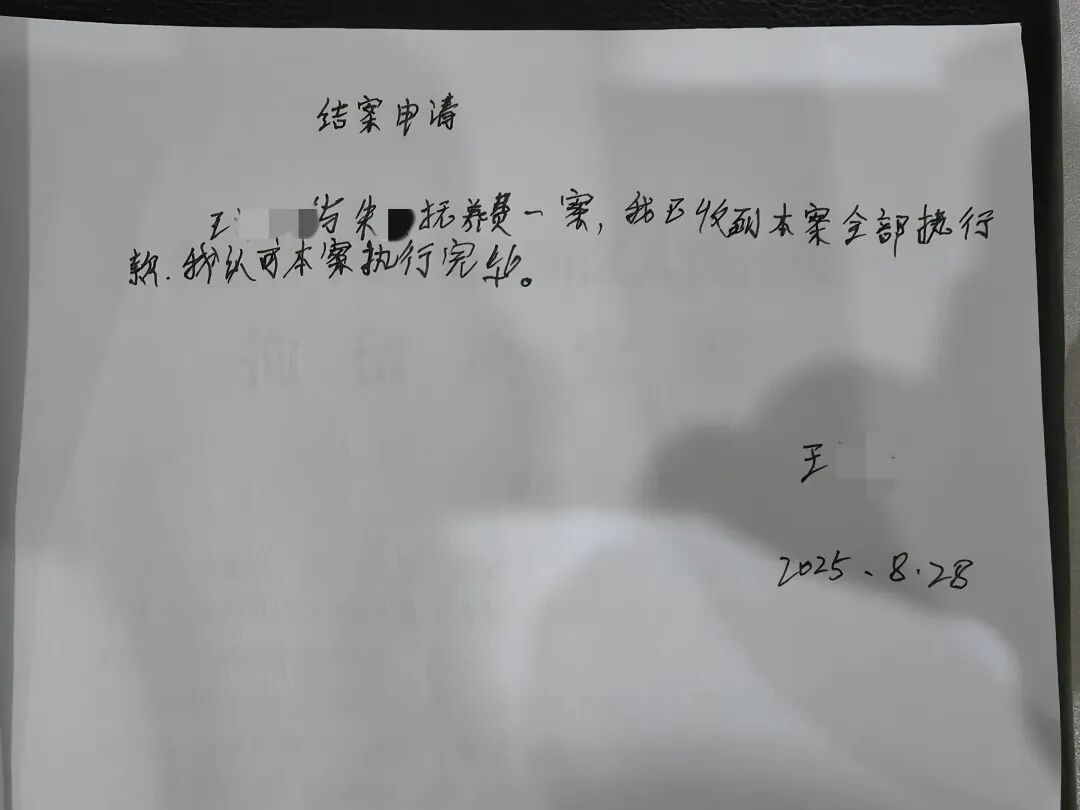 结案申请
王 与朱 抚养费一案，我已收到本案全部执行
款.我认可本案执行完毕。
王
2025、8.28